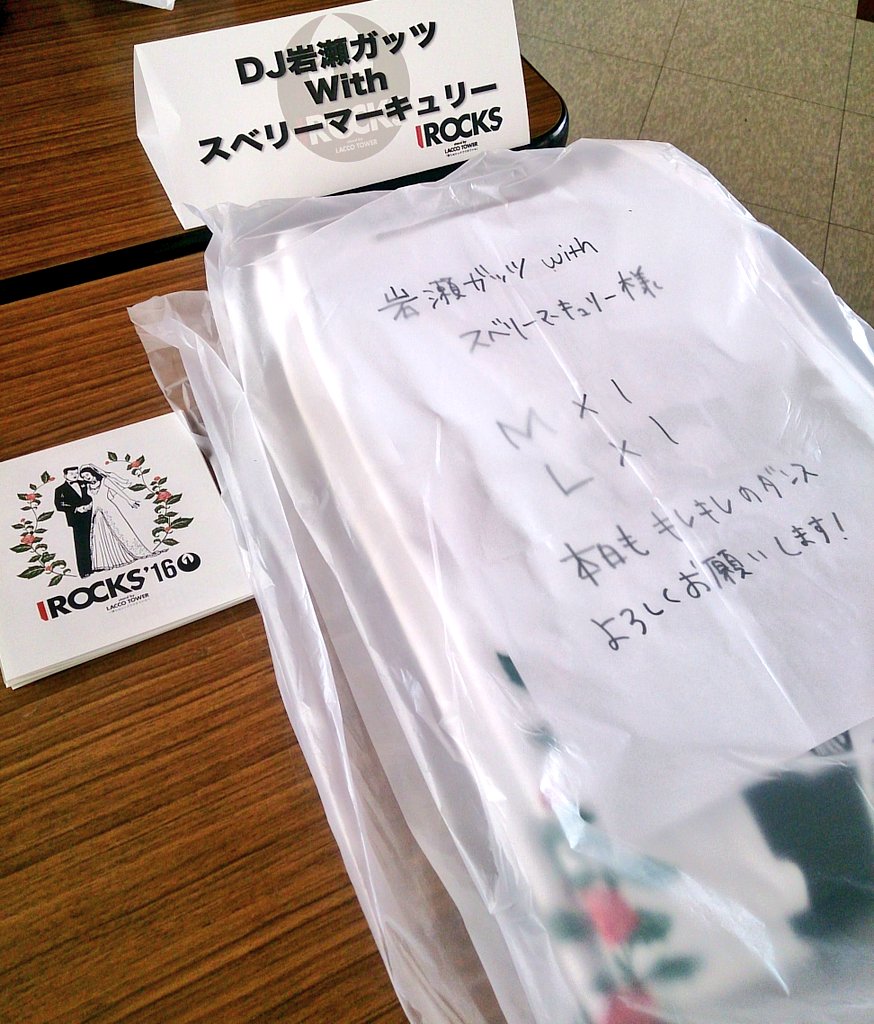 DJ岩瀬ガッツ
With
スベリーマーキュリー
ROCKS
LACCO TOWER
IROCKS
stand by
LACCO TOWER
岩瀬ガッツ with
スベリーマーキュリー様
M × 1
L × 1
本日も キレキレのダンス
よろしくお願いします!
IROCKS'16
stand by
LACCO TOWER